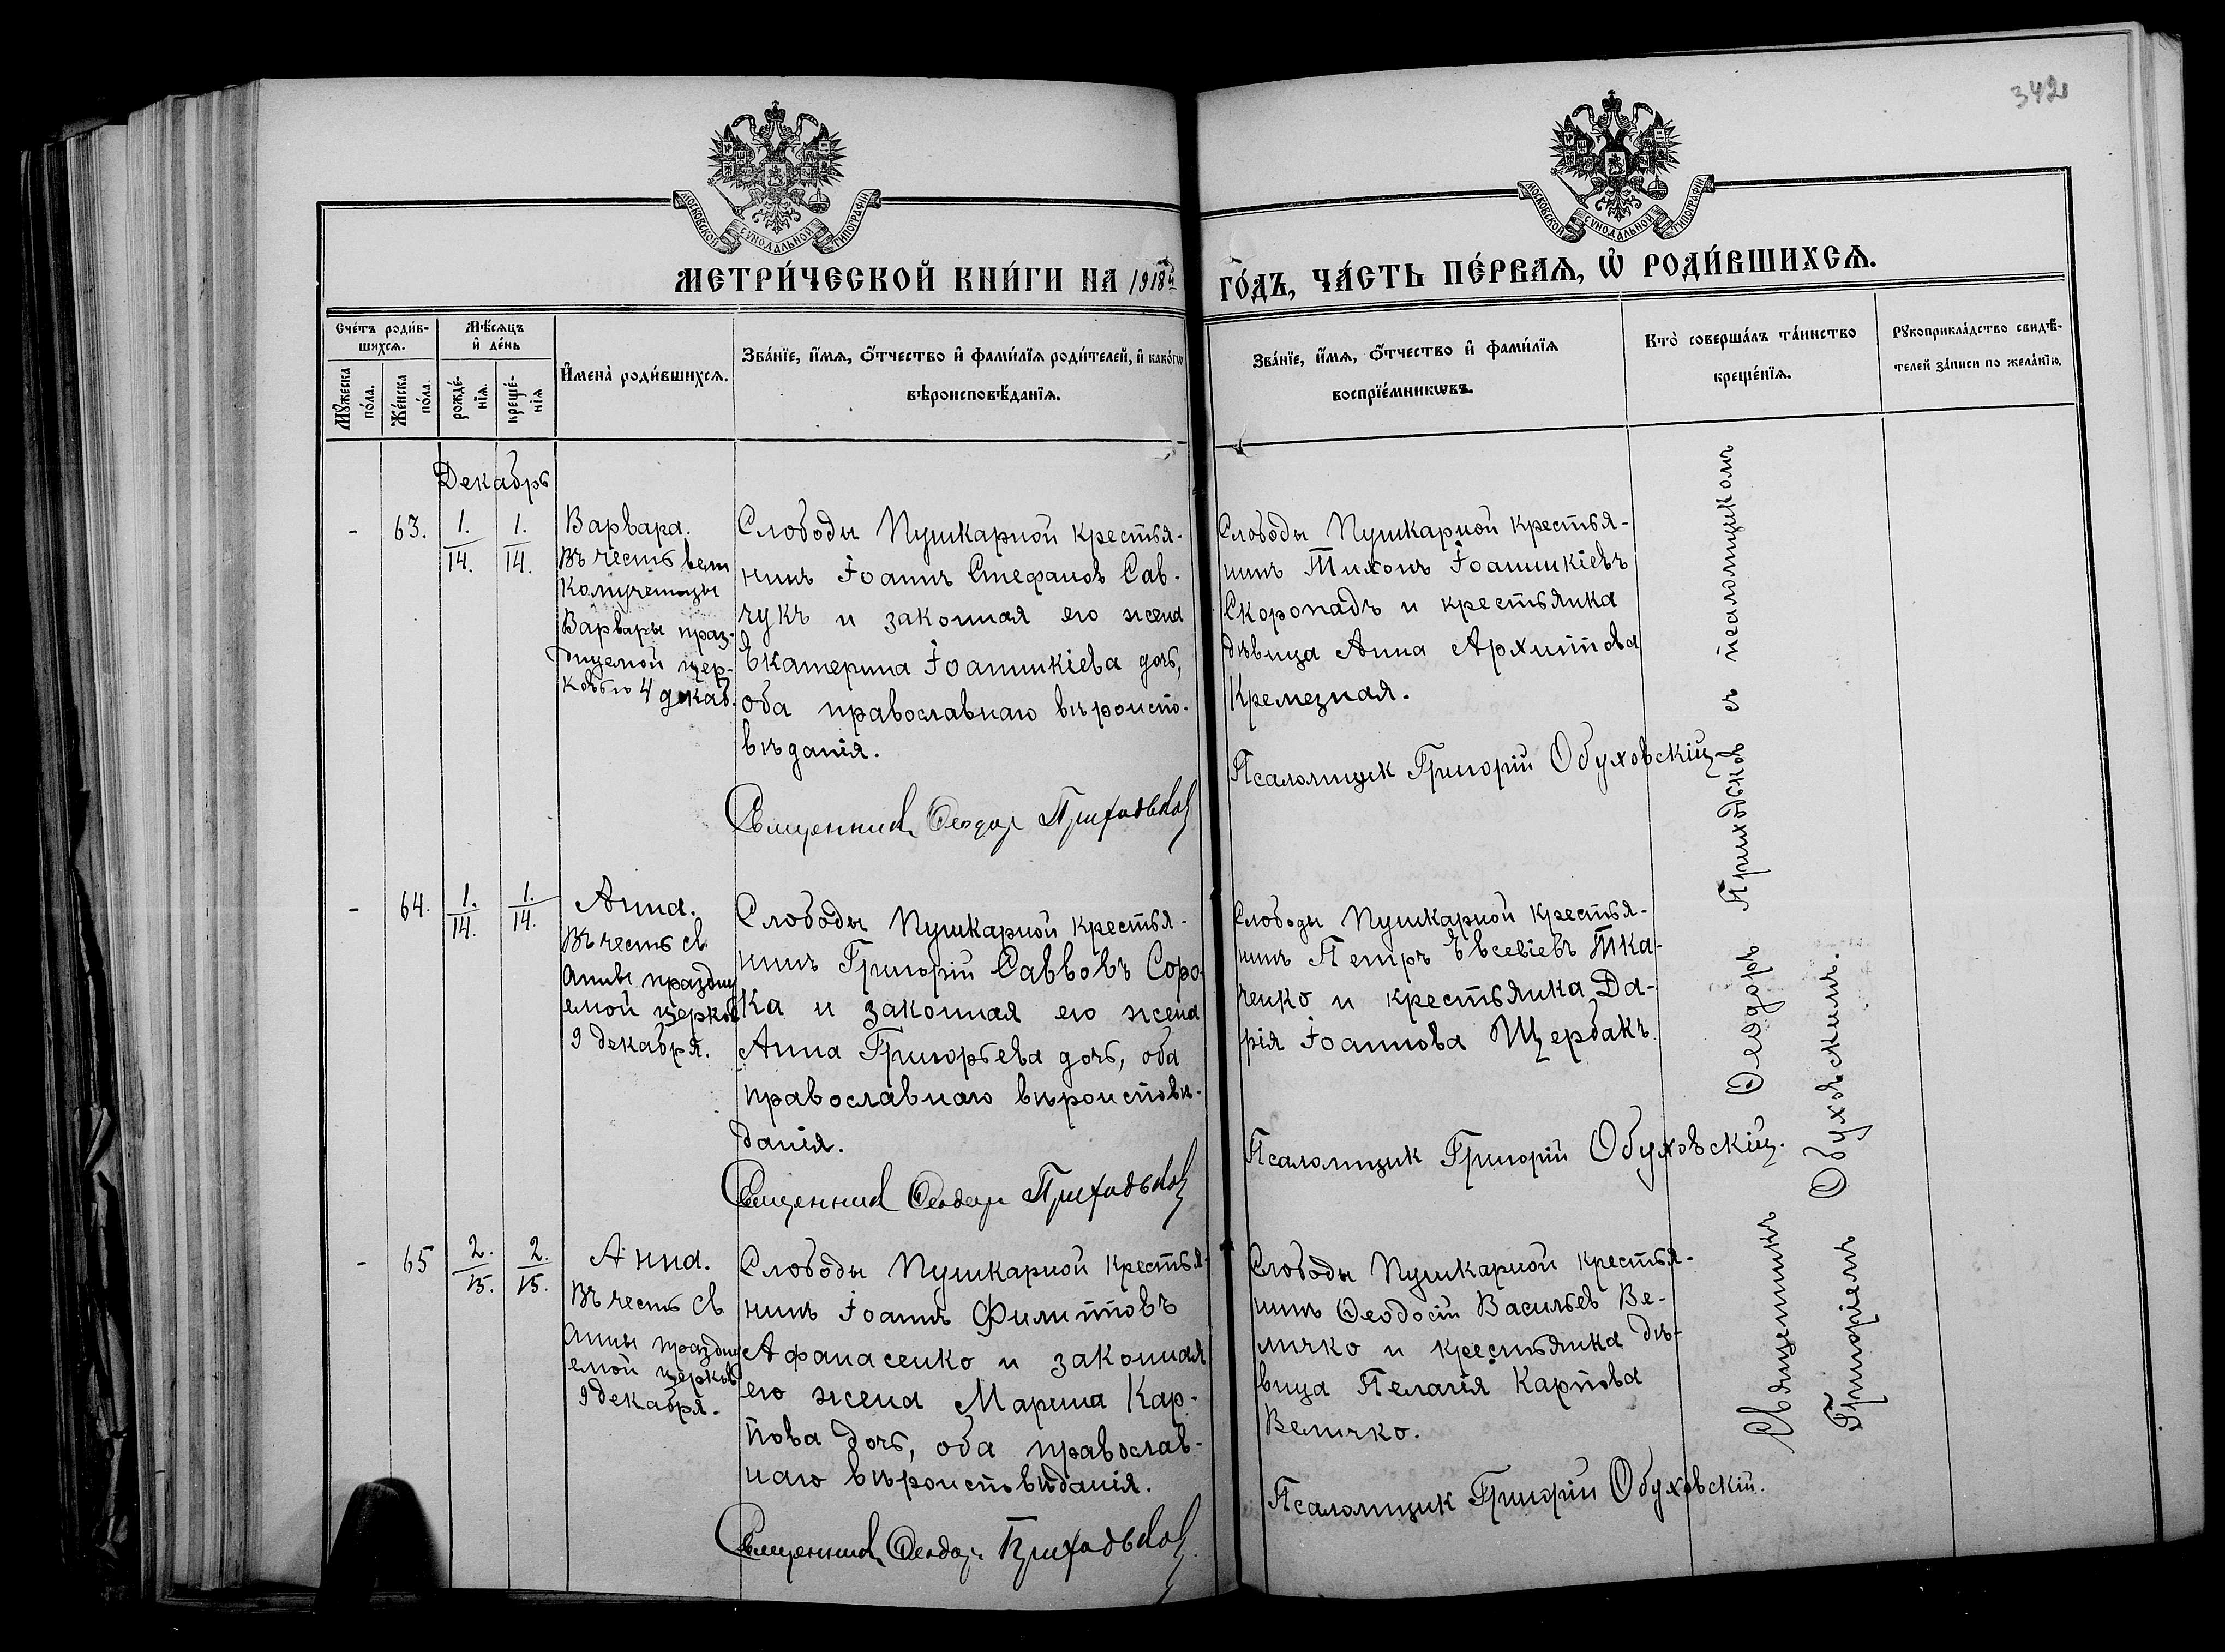 342
МОСКОВСКОЙ СѴНОДАЛЬНОЙ ТИПОГРАФІИ
МОСКОВСКОЙ СѴНОДАЛЬНОЙ ТИПОГРАФІИ
МЕТРИ́ЧЕСКОЙ КНИ́ГИ НА 1918й
ГО́ДЪ, ЧА́СТЬ ПЕ́РВАѦ, Ѡ҆ РОДИ́ВШИХСѦ.
Сче́тъ роди́в-
шихсѧ.
Мѣ́сѧцъ
и҆ де́нь
Мꙋ́жеска
по́ла.
Же́нска
по́ла.
рожде́-
нїѧ.
креще́-
нїѧ
И҆мена̀ роди́вшихсѧ.
Зва́нїе, и҆́мѧ, ѻ҆́тчество и҆ фами́лїѧ роди́телей, и҆ како́гѡ
вѣроисповѣ́данїѧ.
Зва́нїе, и҆́мѧ, ѻ҆́тчество и҆ фами́лїѧ
воспрїе́мникѡвъ.
Кто̀ соверша́лъ та́инство
креще́нїѧ.
Рꙋкоприкла́дство свидѣ́-
телей за́писи по жела́нїю.
Декабрь
- 63. 1. 1.
14. 14.
Варвара.
Въ честь вели
комученицы
Варвары праз-
днуемой цер-
ковью 4 декаб.
Слободы Пушкарной крестья-
нинъ Іоаннъ Стефановъ Сав-
чукъ и законная его жена
Екатерина Іоанникіева дочь,
оба православнаго вѣроиспо-
вѣданія.
Священникъ Ѳеодоръ Приходьковъ
Слободы Пушкарной крестья-
нинъ Тихонъ Іоанникіевъ
Скоропадъ и крестьянка
дѣвица Анна Архиппова
Кремезная.
Псаломщик Григорій Обуховскій
- 64. 1. 1.
14. 14.
Анна.
Въ честь св.
Анны праздну
емой церков
9 декабря.
Слободы Пушкарной крестья-
нинъ Григорій Савловъ Соро-
ка и законная его жена
Анна Григорьева дочь, оба
православнаго вѣроисповѣ-
данія.
Священник Ѳеодоръ Приходьковъ
Слободы Пушкарной крестья-
нинъ Петръ Евсевіевъ Тка-
ченко и крестьянка Да-
рія Іоаннова Щербакъ.
Псаломщик Григорій Обуховскій.
- 65 2. 2.
15. 15.
Анна.
Въ честь св
Анны праздну
емой церков
9 декабря.
Слободы Пушкарной крестья-
нинъ Іоаннъ Филипповъ
Афанасенко и законная
его жена Марина Кар-
пова дочь, оба православ-
наго вѣроисповѣданія.
Священникъ Ѳеодоръ Приходьковъ
Слободы Пушкарной крестья-
нинъ Ѳеодосій Васильев Ве-
личко и крестьянка дѣ-
вица Пелагія Карпова
Величко.
Псаломщик Григорій Обуховскій.
Священникъ Ѳеодоръ Приходьков съ псаломщикомъ
Григоріемъ Обуховскимъ.